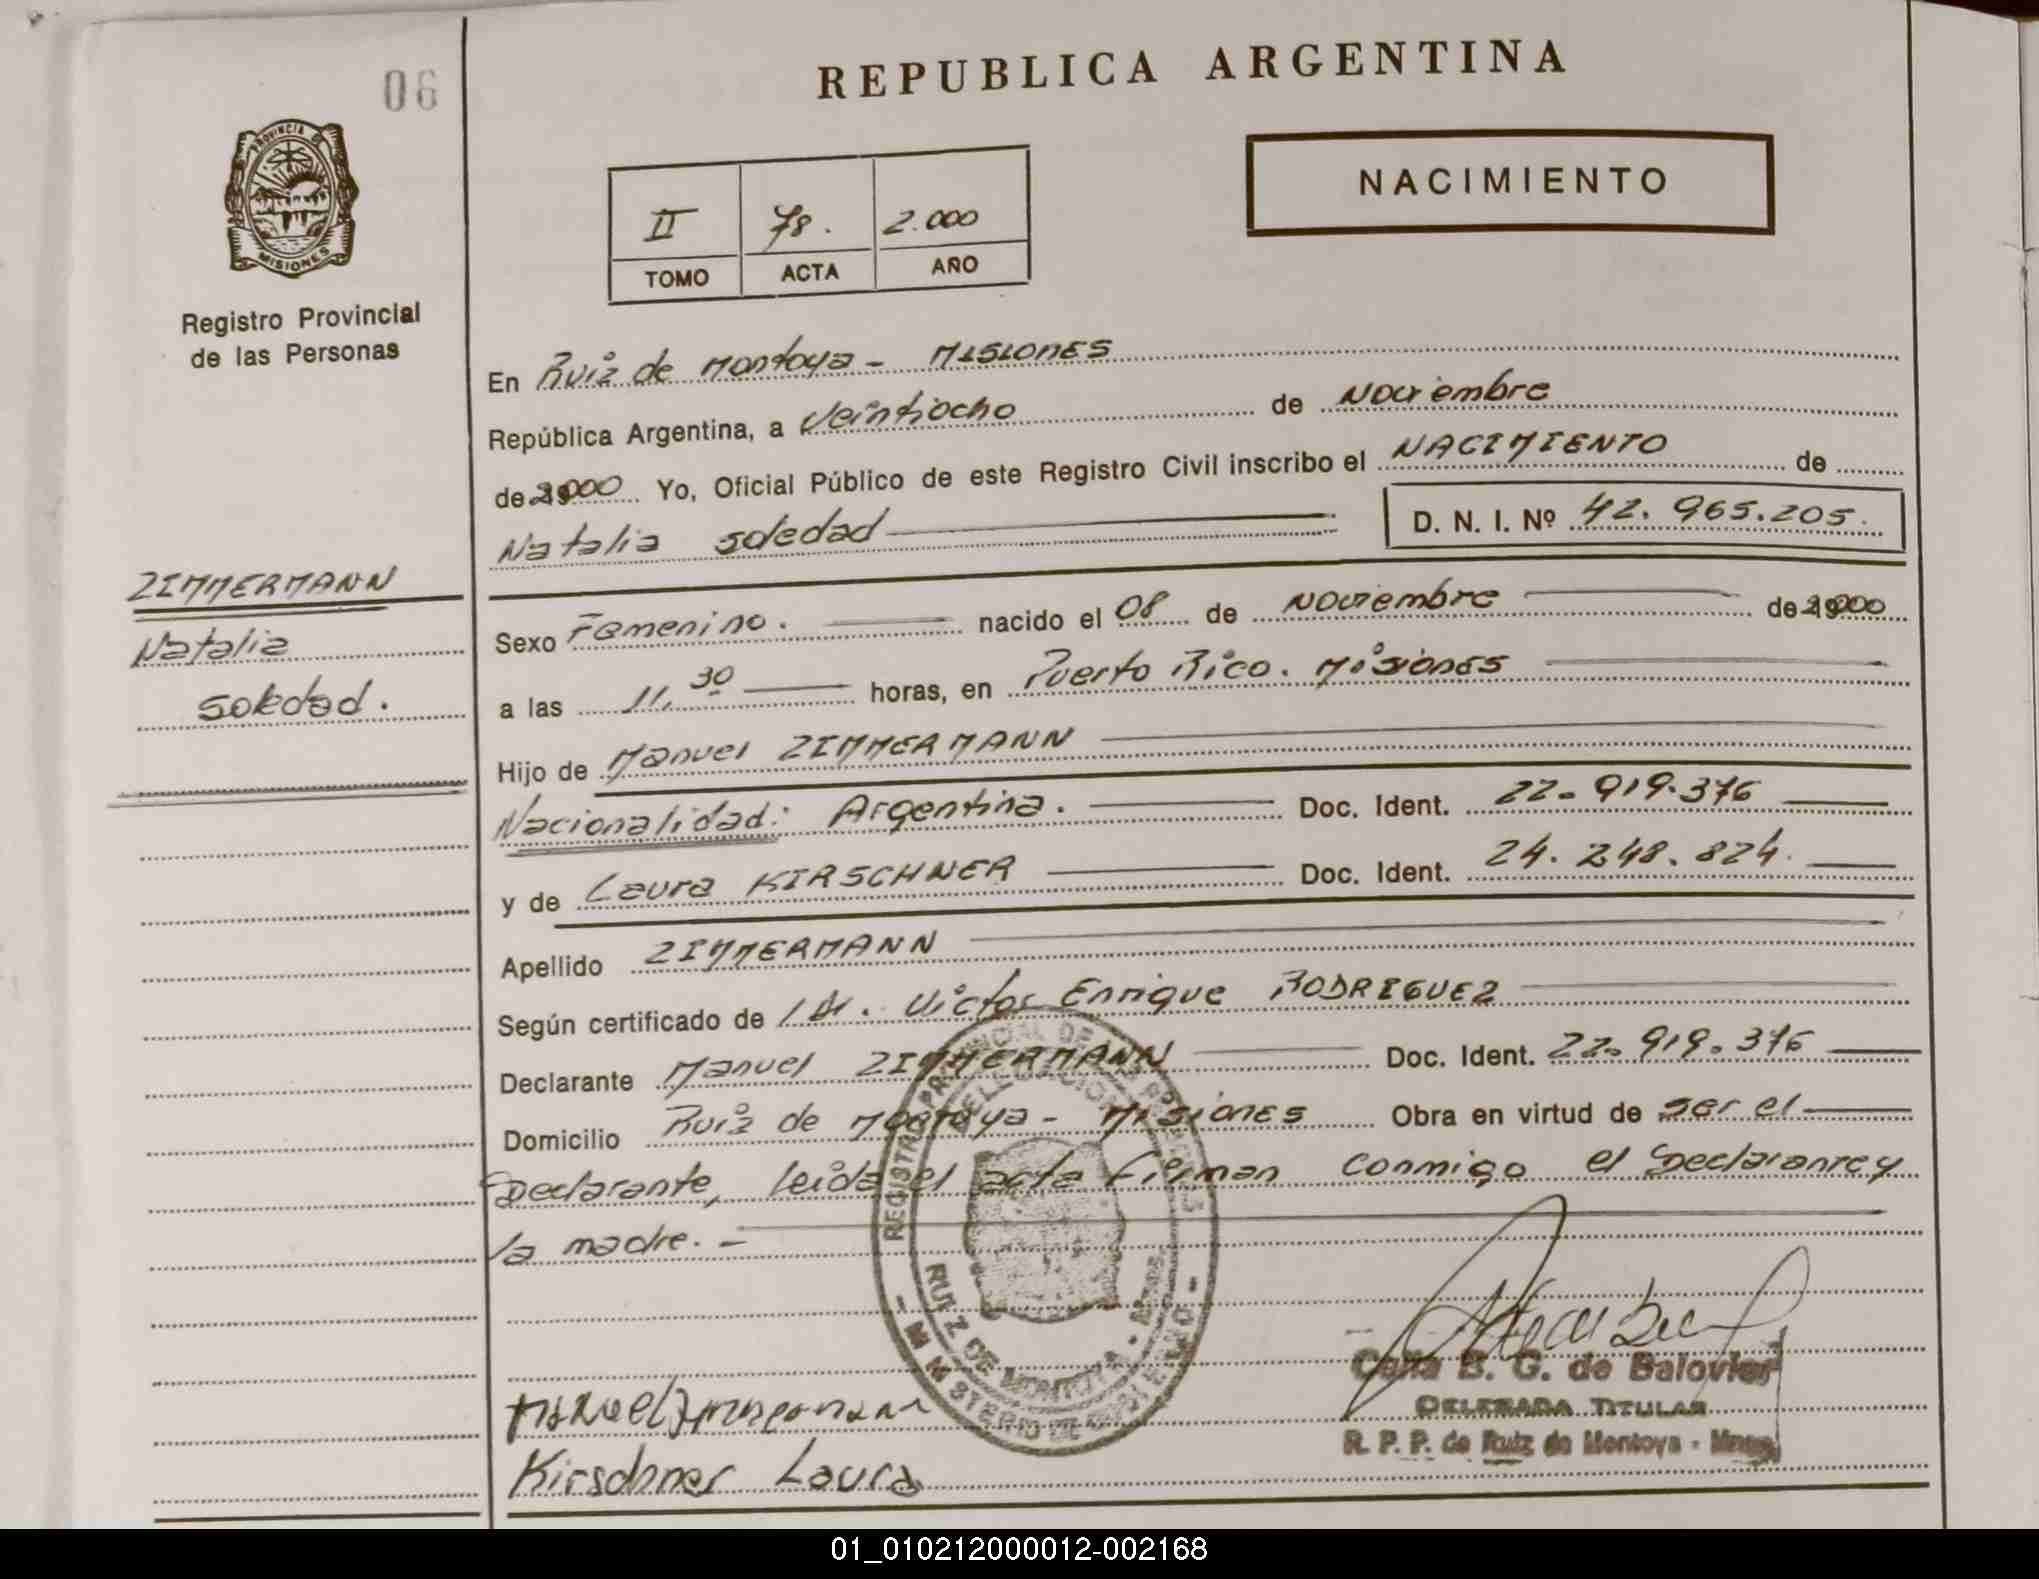 06
REPUBLICA ARGENTINA
NACIMIENTO
II 78. 2.000
TOMO ACTA AÑO
PROVINCIA DE MISIONES
Registro Provincial
de las Personas
En Ruiz de Montoya - MISIONES
República Argentina, a Veintiocho de Noviembre
de 2000 Yo, Oficial Público de este Registro Civil inscribo el NACIMIENTO de
Natalia Soledad D. N. I. Nº 42.965.205.
ZIMMERMANN
Natalia
Soledad.
Sexo Femenino. nacido el 08 de Noviembre de 2000
a las 11,30 horas, en Puerto Rico. Misiones
Hijo de Manuel ZIMMERMANN
Nacionalidad: Argentina. Doc. Ident. 22.919.376
y de Laura KIRSCHNER Doc. Ident. 24.248.824.
Apellido ZIMMERMANN
Según certificado de Victor Enrique RODRIGUEZ
Declarante Manuel ZIMMERMANN Doc. Ident. 22.919.376
Domicilio Ruiz de Montoya - Misiones Obra en virtud de ser el
Declarante, leida el acta Firman conmigo el Declarante y
la madre. -
REGISTRO PROVINCIAL DE LAS PERSONAS
RUIZ DE MONTOYA - Mnes.
- MINISTERIO DE GOBIERNO -
B. G. de Balovier
DELEGADA TITULAR
R. P. P. de Ruiz de Montoya - Mnes.
Manuel Zimmermann
Kirschner Laura
01_010212000012-002168